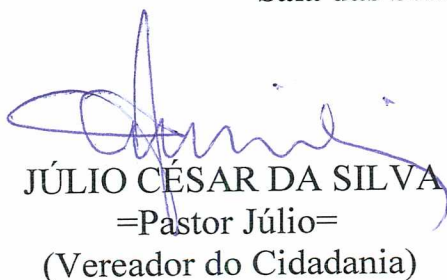 JÚLIO CÉSAR DA SILVA
=Pastor Júlio=
(Vereador do Cidadania)